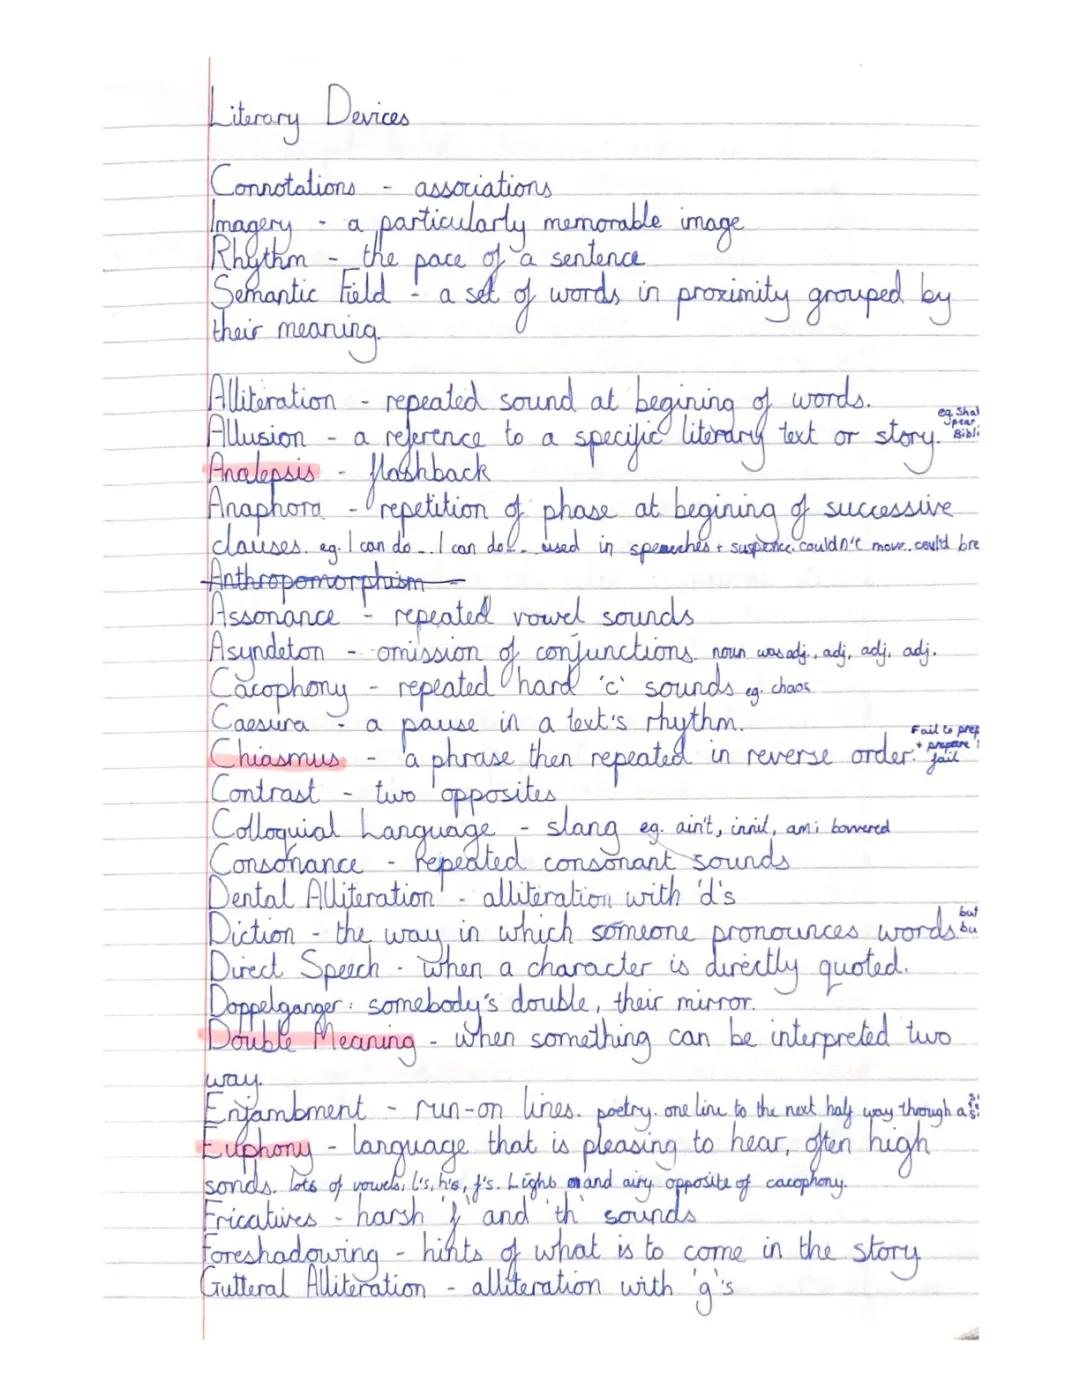 Literary Devices
Connotations - associations
Imagery - a particularly memorable image
Rhythm - the pace of a sentence
Semantic Field - a set of words in proximity grouped by
their meaning.
Alliteration - repeated sound at begining of words.
Allusion - a reference to a specific literary text or story. eg. Shak
pear
Bibl
Analepsis - flashback
Anaphora - repetition of phase at begining of successive
clauses. eg. I can do... I can do... used in speaches + suspence. couldn't move.. could bre
Anthropomorphism
Assonance - repeated vowel sounds
Asyndeton - omission of conjunctions. noun was adj., adj, adj, adj.
Cacophony - repeated hard 'c' sounds eg. chaos
Caesura - a pause in a text's rhythm.
Chiasmus - a phrase then repeated in reverse order. Fail to prep
+ prepare
fail
Contrast - two opposites
Colloquial Language - slang eg. ain't, innit, am i bovvered
Consonance - repeated consonant sounds
Dental Alliteration - alliteration with 'd's
Diction - the way in which someone pronounces words. but
bu
Direct Speech - when a character is directly quoted.
Doppelganger: somebody's double, their mirror.
Double Meaning - when something can be interpreted two
way.
Enjambment - run-on lines. poetry. one line to the next half way through a
Euphony - language that is pleasing to hear, often high
sonds. lots of vowels, l's, h's, f's. Light and airy opposite of cacophony.
Fricatives - harsh 'f' and 'th' sounds
Foreshadowing - hints of what is to come in the story
Gutteral Alliteration - alliteration with 'g's